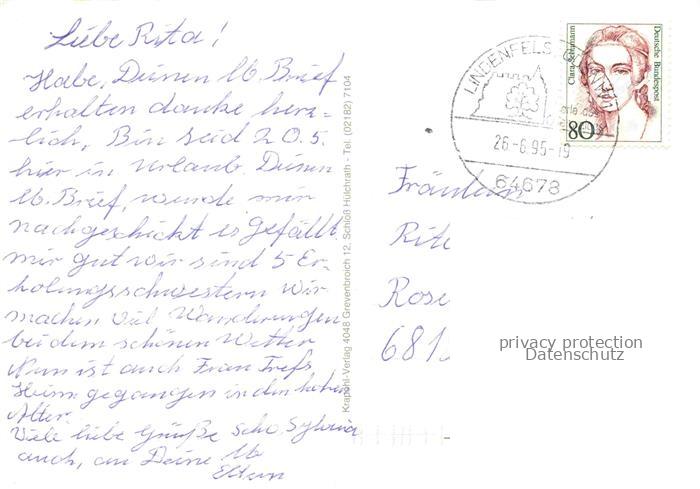 Liebe Rita!
Habe, Deinen lb. Brief
erhalten danke herz=
lich, Bin seid 20.5.
hier in Urlaub. Deinen
lb. Brief, wurde mir
nachgeschickt es gefällt
mir gut wir sind 5 Er-
holungsschwestern wir
machen viel Wanderungen
bei dem schönen Wetter
Nun ist auch Frau Trefs
Heim gegangen in den hohen
Alter.
Viele liebe Grüße Schw. Sylvia
auch, an Deine lb
Eltern
Krapohl-Verlag 4048 Grevenbroich 12, Schloß Hülchrath - Tel. (02182) 7104
LINDENFELS
26-6.95-19
64678
Clara Schumann
Deutsche Bundespost
80
Fräulein
Rit
Rose
681
privacy protection
Datenschutz